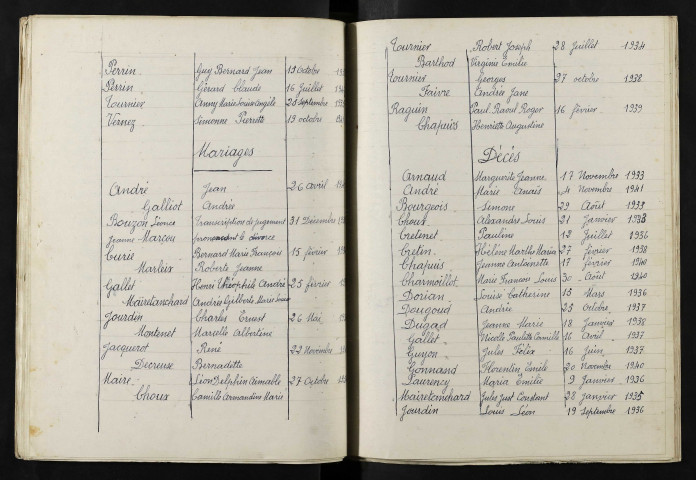 Perrin Guy Bernard Jean 19 Octobre
Perrin Gérard Claude 16 Juillet
Tournier Anny Marie Louise Angèle 28 Septembre
Vernez Simonne Pierrette 19 octobre
Mariages
André Jean 26 avril
Galliot Andrée
Bouzon Léonce Transcription de jugement 31 Décembre
Jeanne Marçou prononçant le divorce
Curie Bernard Marie François 15 février
Marleix Roberte Jeanne
Gallet Henri Théophile André 25 février
Mairetanchard Andrée Gilberte Marie Louise
Jourdin Charles Ernest 26 Mai
Montenet Marcelle Albertine
Jacquerot René 29 Novembre
Decreuse Bernadette
Maire Léon Delphin Aimable 27 Octobre
Choux Camille Armandine Marie
Tournier Robert Joseph 28 Juillet 1934
Barthod Virginie Emélie
Tournier Georges 27 octobre 1938
Faivre Andrée Jane
Raguin Paul Raoul Roger 16 février 1939
Chapuis Henriette Augustine
Décès
Arnaud Marguerite Jeanne 17 Novembre 1933
André Marie Anaïs 4 Novembre 1941
Bourgeois Simone 29 Août 1939
Choux Alexandre Louis 21 Janvier 1938
Cretenet Pauline 12 Juillet 1936
Cretin Hélène Marthe Maria 27 février 1938
Chapuis Jeanne Antoinette 17 février 1940
Charmoillot Marie François Louis 30 Août 1940
Dorian Louise Catherine 15 Mars 1936
Dougoud Andrée 25 Octobre 1937
Dugad Jeanne Marie 18 Janvier 1938
Gallet Nicolle Paulette Camille 16 Avril 1937
Guyon Jules Félix 16 Juin 1937
Gonnand Florentin Emile 20 Novembre 1940
Laurency Maria Emilie 9 Janvier 1936
Mairetanchard Jules Just Constant 28 Janvier 1935
Jourdin Louis Léon 19 Septembre 1936